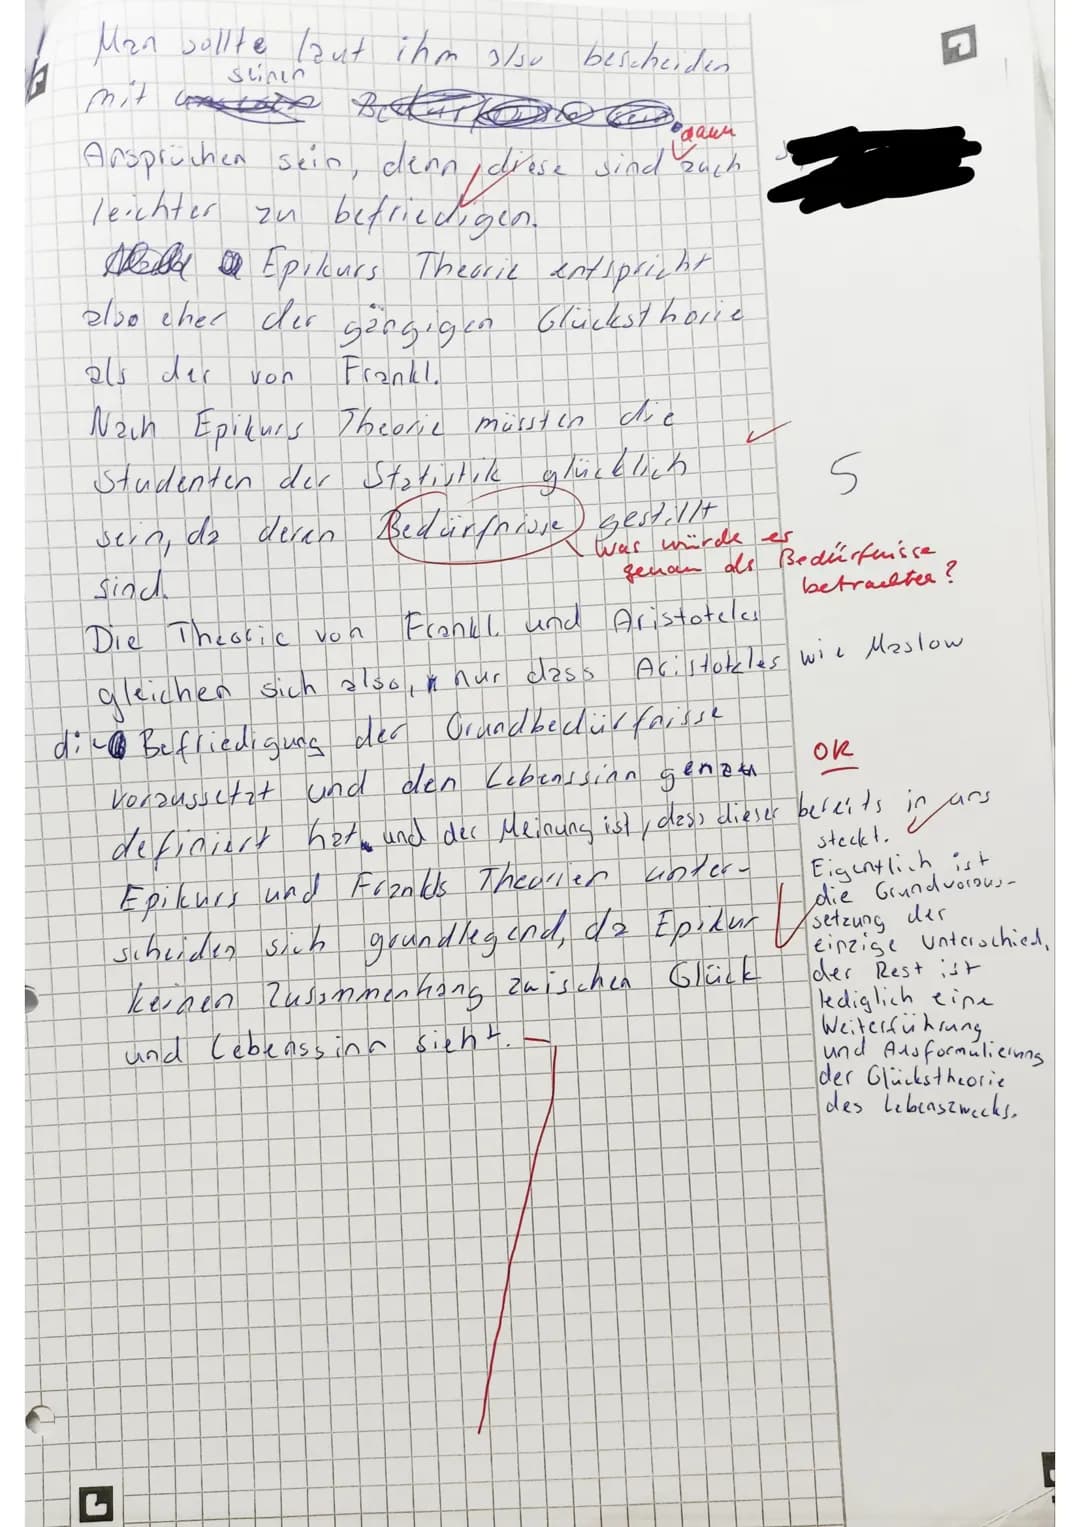 Man sollte laut ihm also bescheiden
seinen
mit
dann
Ansprüchen sein, denn, diese sind auch
leichter zu befriedigen.
Epikurs Theorie entspricht
also eher der gängigen Glücksthorie
als der von Frankl.
Nach Epikurs Theorie müssten die
Studenten der Statistik glücklich
5
sein, da deren Bedürfnisse gestillt
Was würde er
genau als Bedürfnisse
betrachten?
sind.
Die Theorie von Frankl und Aristoteles
gleichen sich also, nur dass Aristoteles wie Maslow
die Befriedigung der Grundbedürfnisse
OK
voraussetzt und den Lebenssinn genau
definiert hat und der Meinung ist, dass dieser bereits in uns
steckt.
Epikurs und Frankls Theorien unter-
scheiden sich grundlegend, da Epikur
keinen Zusammenhang zwischen Glück
und Lebenssinn sieht.
Eigentlich ist
die Grundvoraus-
setzung der
einzige Unterschied,
der Rest ist
lediglich eine
Weiterführung
und Ausformulierung
der Glückstheorie
des Lebenszwecks.